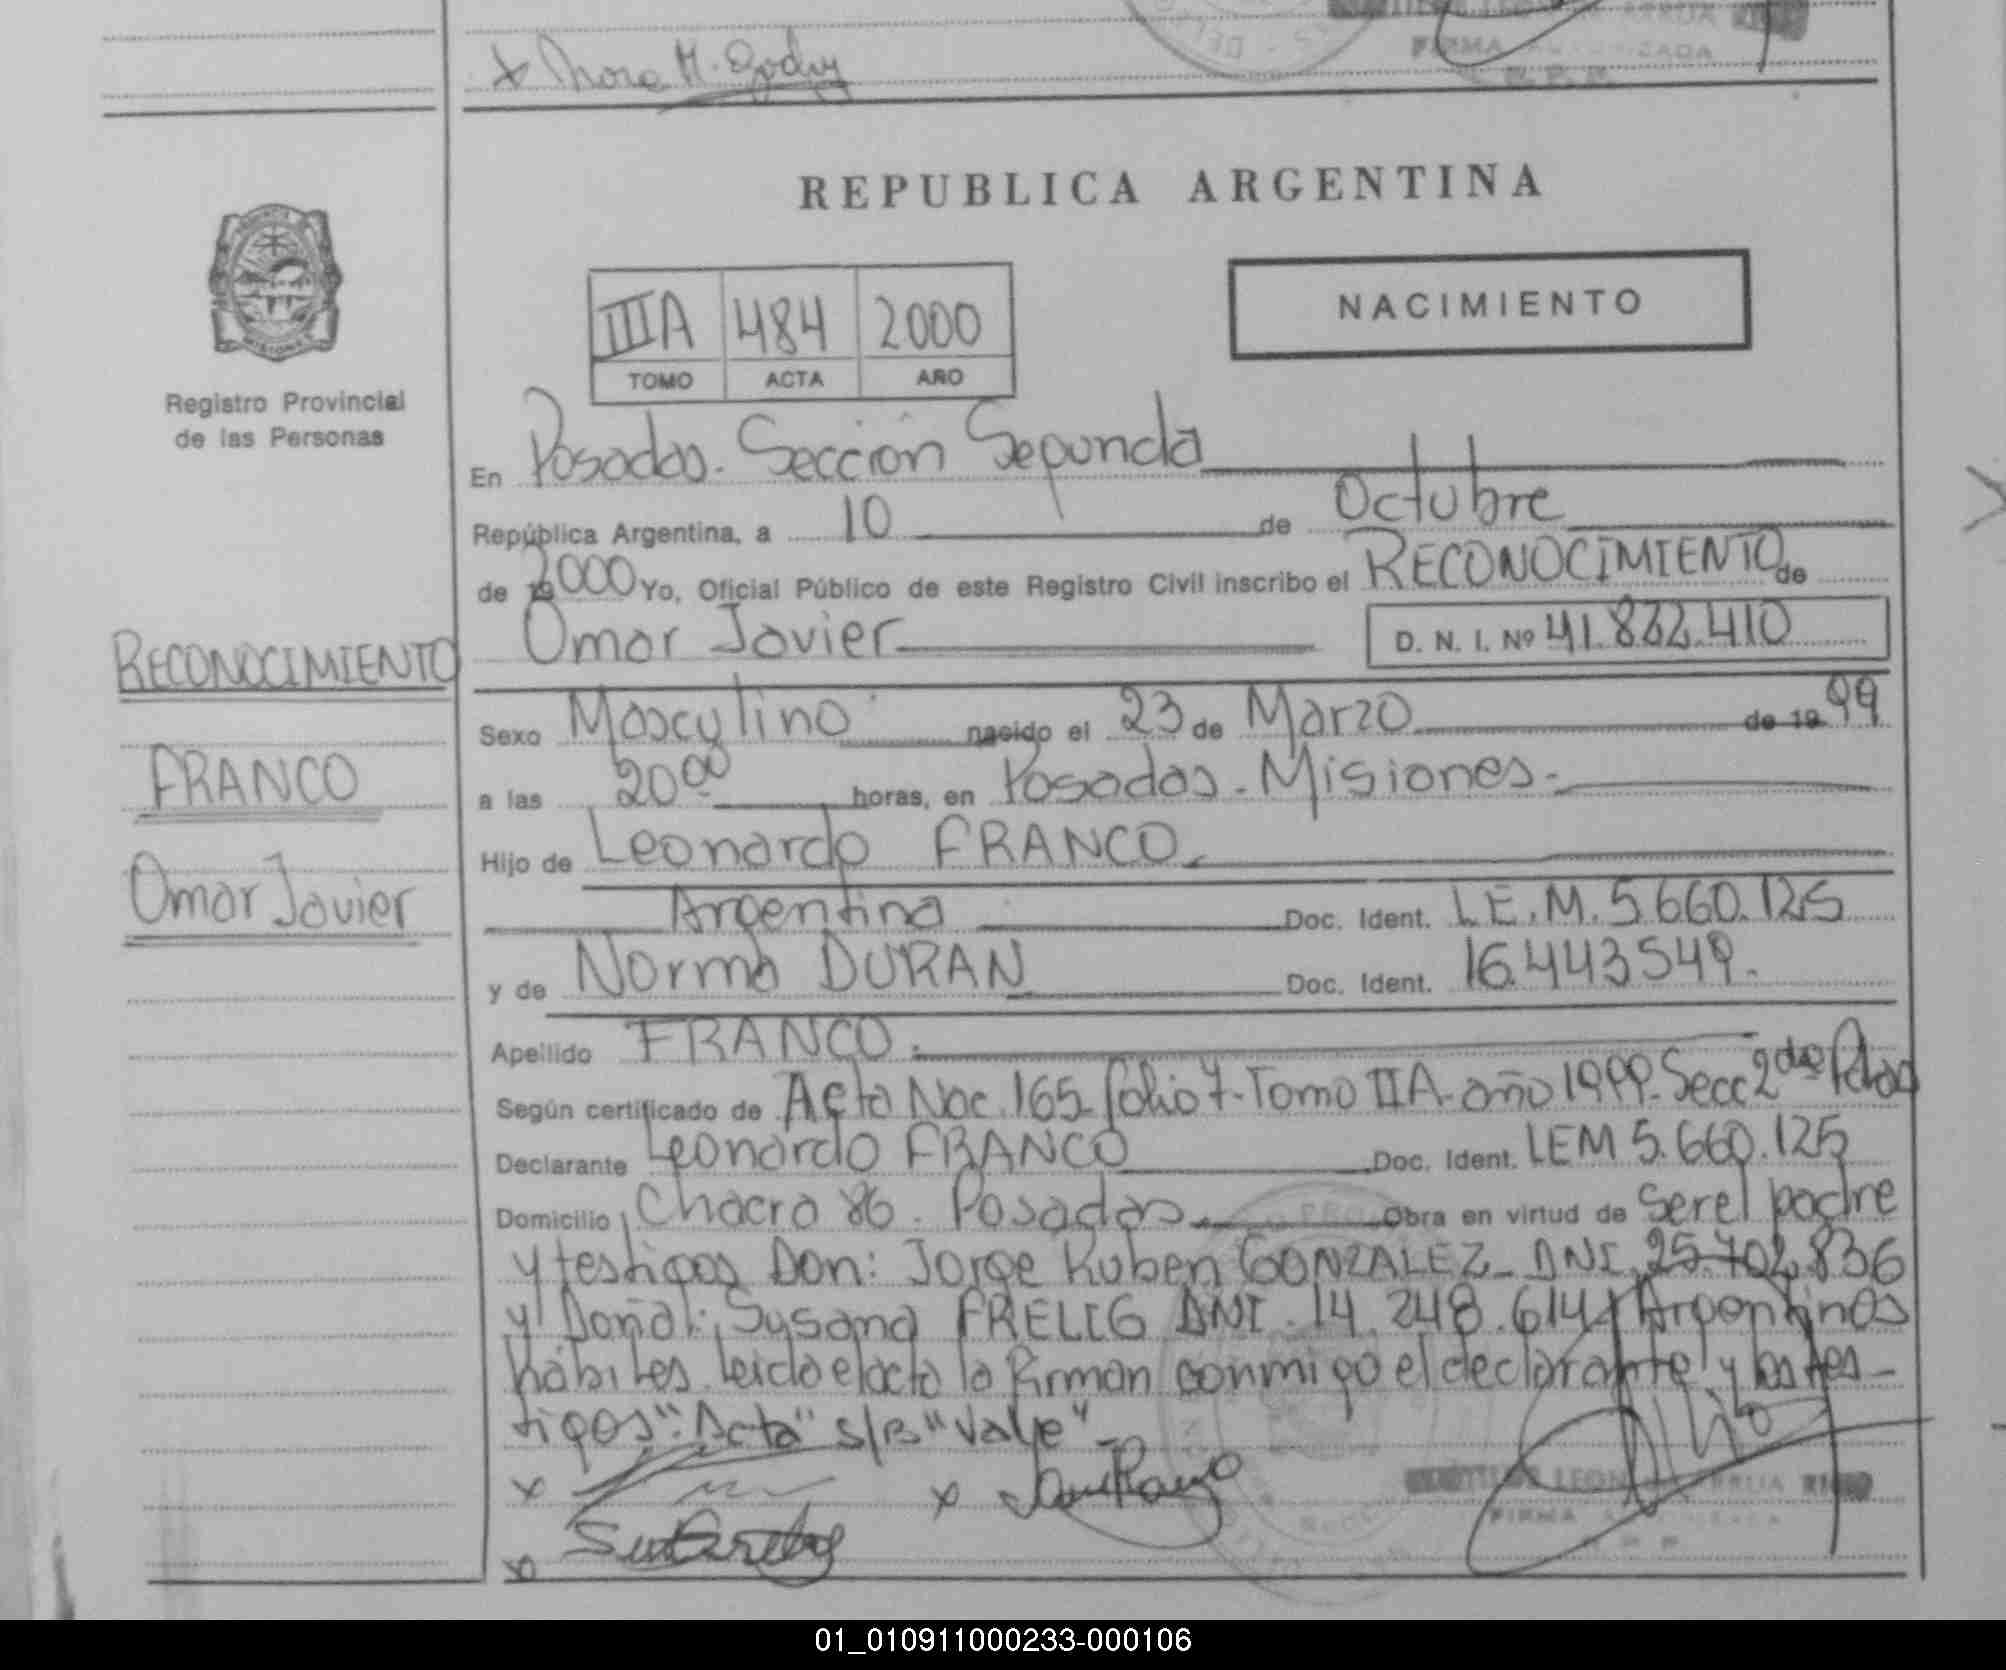 FIRMA AUTORIZADA
R. P. P.
REPUBLICA ARGENTINA
IIIA 484 2000
TOMO ACTA AÑO
NACIMIENTO
Registro Provincial
de las Personas
En Posadas. Sección Segunda
República Argentina, a 10 de Octubre
de 2000 Yo, Oficial Público de este Registro Civil inscribo el RECONOCIMIENTO de
Omar Javier D. N. I. Nº 41.822.410
RECONOCIMIENTO
FRANCO
Omar Javier
Sexo Masculino nacido el 23 de Marzo de 1999
a las 20 00 horas, en Posadas - Misiones.
Hijo de Leonardo FRANCO.
Argentina Doc. Ident. L.E.M. 5.660.125
y de Norma DURAN Doc. Ident. 16.443549.
Apellido FRANCO.
Según certificado de Acta Nac. 165 folio 7 - Tomo IIA - año 1999 - Secc 2da Pdas
Declarante Leonardo FRANCO Doc. Ident. LEM 5.660.125
Domicilio Chacra 86. Posadas. Obra en virtud de Ser el padre
y testigos Don: Jorge Ruben GONZALEZ - DNI. 25.702.836
y Doña: Susana FRELIG DNI. 14.248.614 Argentinos
hábiles. leida el acta la firman conmigo el declarante y los tes-
tigos". Acta" s/B "Vale" -
x x
x
FIRMA AUTORIZADA
R. P. P.
01_010911000233-000106